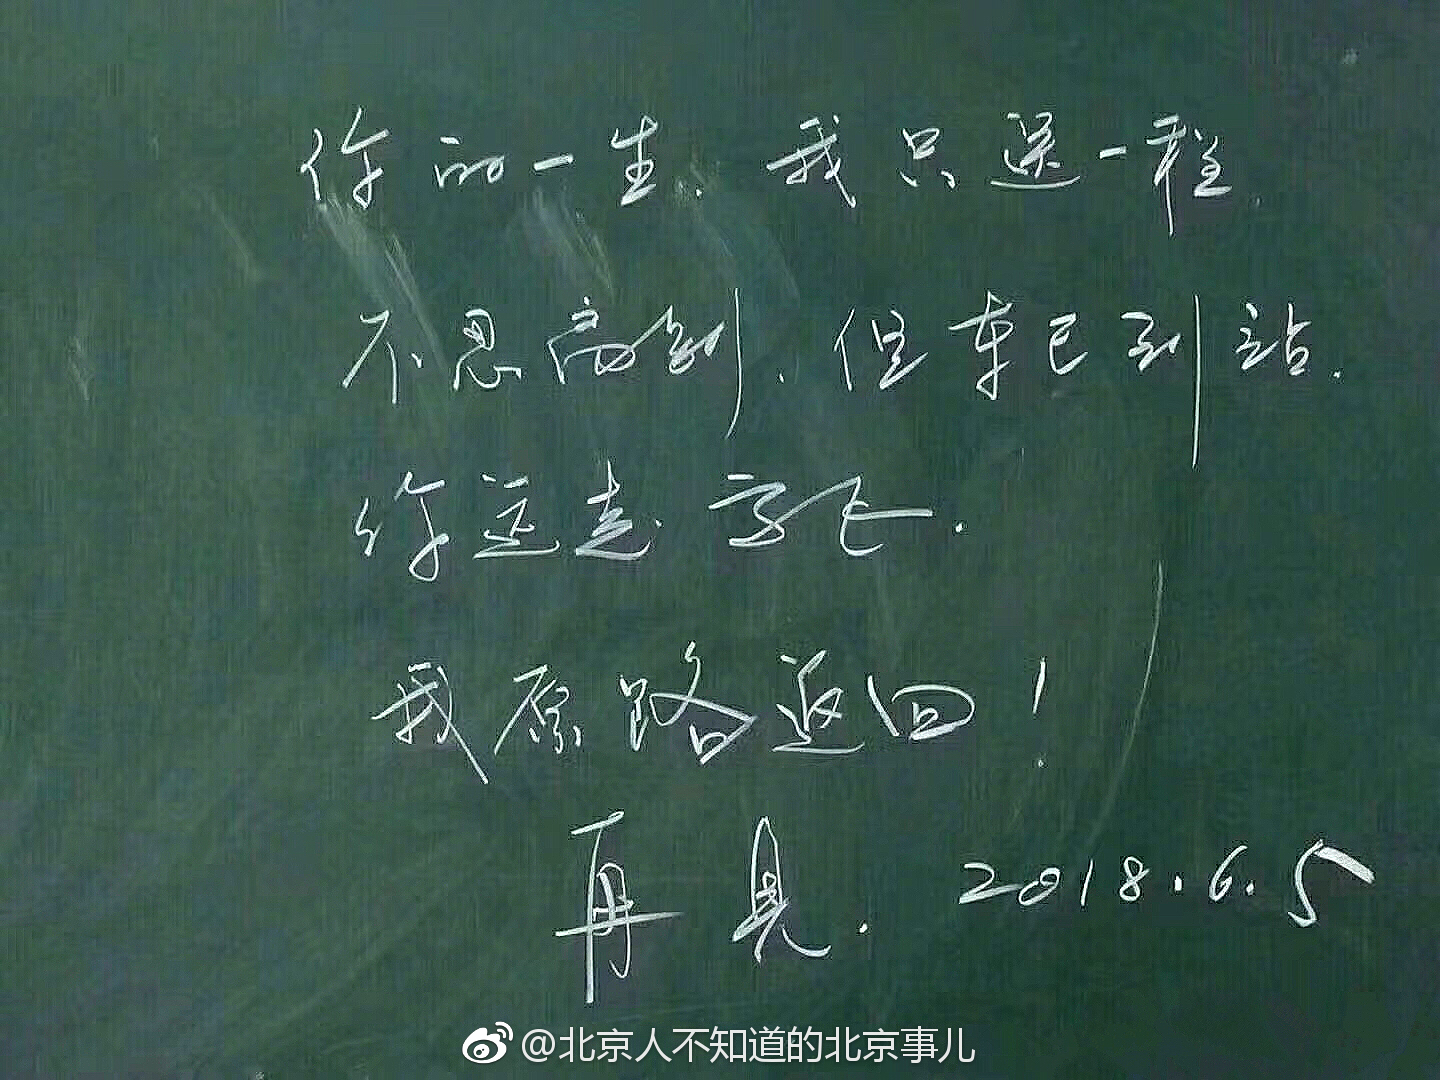 你的一生、我只送一程.
不忍离别、但车已到站.
你远走高飞.
我原路返回！
再见. 2018.6.5
@北京人不知道的北京事儿